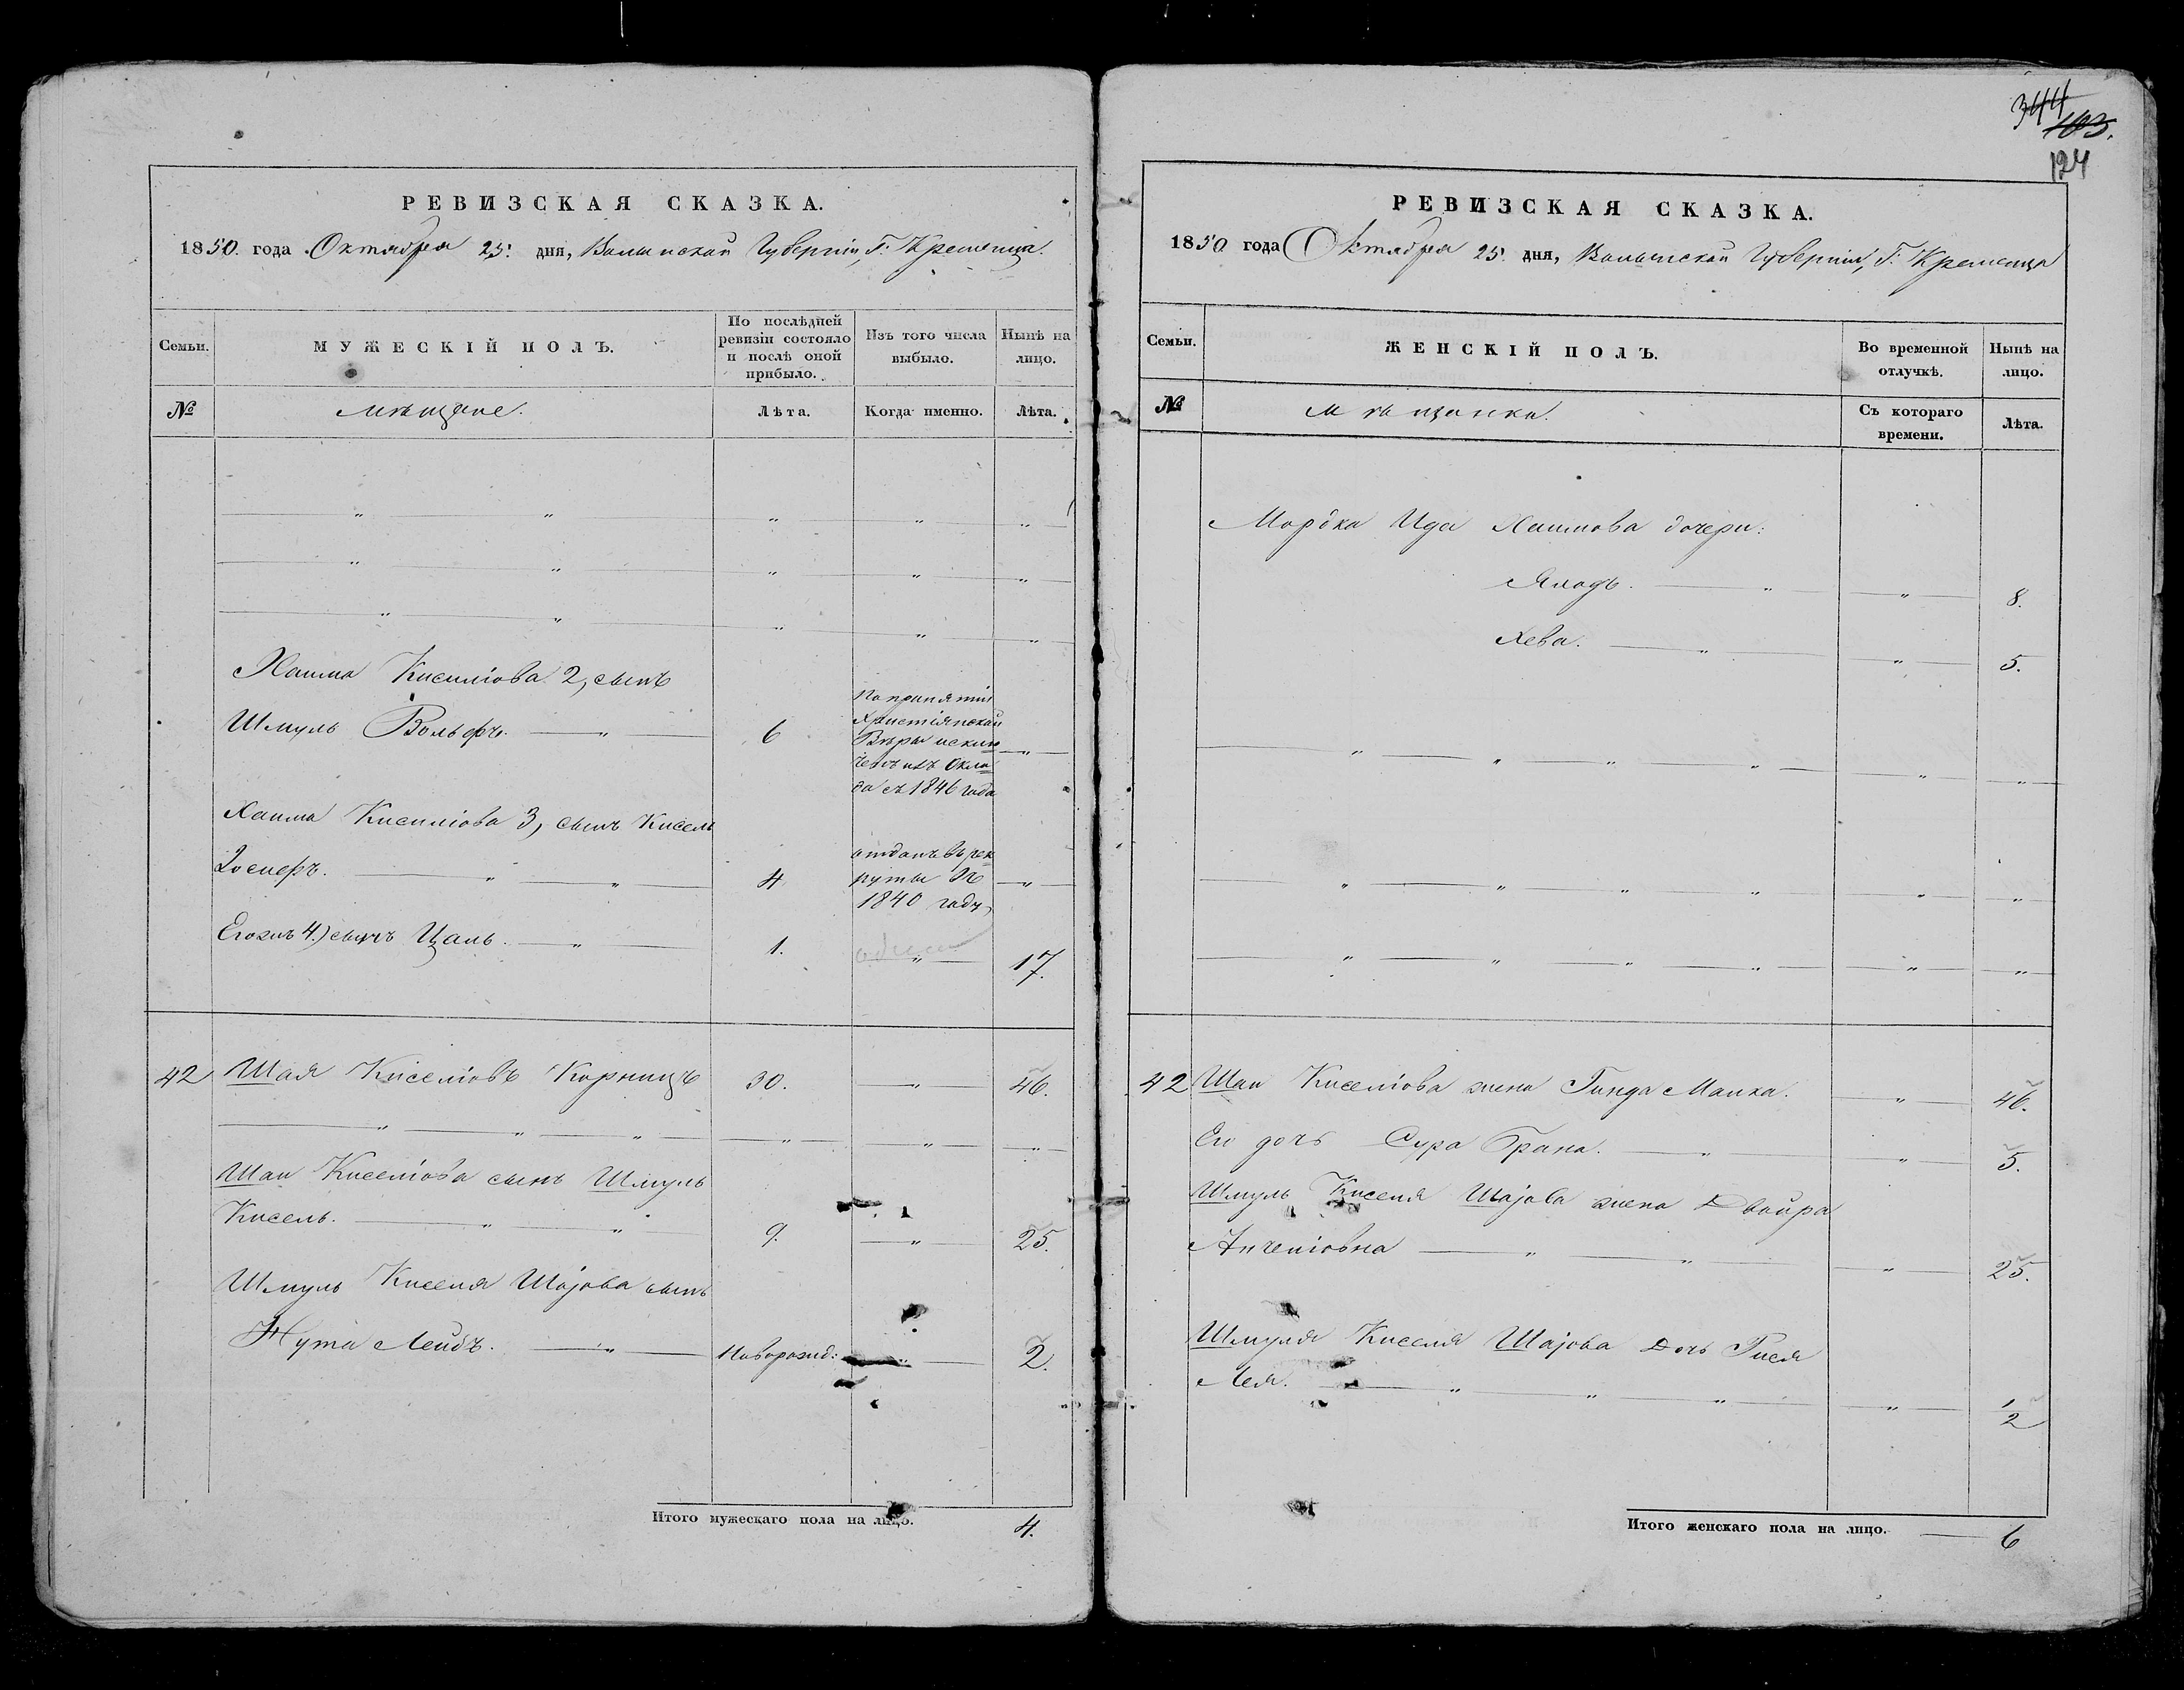 РЕВИЗСКАЯ СКАЗКА.
1850. года Октября 25. дня, Волынской Губерніи, Г. Кременца.
Семьи. МУЖЕСКІЙ ПОЛЪ. По послѣдней ревизіи состояло и послѣ оной прибыло. Изъ того числа выбыло. Нынѣ на лицо.
№ Мѣщане. Лѣта. Когда именно. Лѣта.
Хаима Киселіова 2, сынъ
Шмуль Вольфъ. 6 По принятіи Христіянской Вѣры исключенъ изъ Оклада съ 1846 года
Хаима Киселіова 3, сынъ Кисель
Іосифъ. 4 отданъ въ рекруты въ 1840 году
Егожъ 4) сынъ Цаль. 1. 17.
42 Шая Киселіовъ Корницъ 30. 46.
Шаи Киселіова сынъ Шмуль
Кисель. 9. 25.
Шмуль Киселя Шаjова сынъ
Нута Лейбъ. Новорожд: 2.
Итого мужескаго пола на лицо. 4.
344
103.
124
РЕВИЗСКАЯ СКАЗКА.
1850 года Октября 25. дня, Волынской Губерніи, Г. Кременца
Семьи. ЖЕНСКІЙ ПОЛЪ. Во временной отлучкѣ. Нынѣ на лицо.
№ Мѣщанки. Съ котораго времени. Лѣта.
Мордка Ида Хаимова дочери:
8.
Хева. 5.
42 Шаи Киселіова жена Гинда Малка. 46.
Его дочь Сура Брана. 5.
Шмуль Киселя Шаjова жена Двойра
Анчеліовна 25.
Шмуля Киселя Шаjова Дочь Гися
Лея. 1/2
Итого женскаго пола на лицо. 6